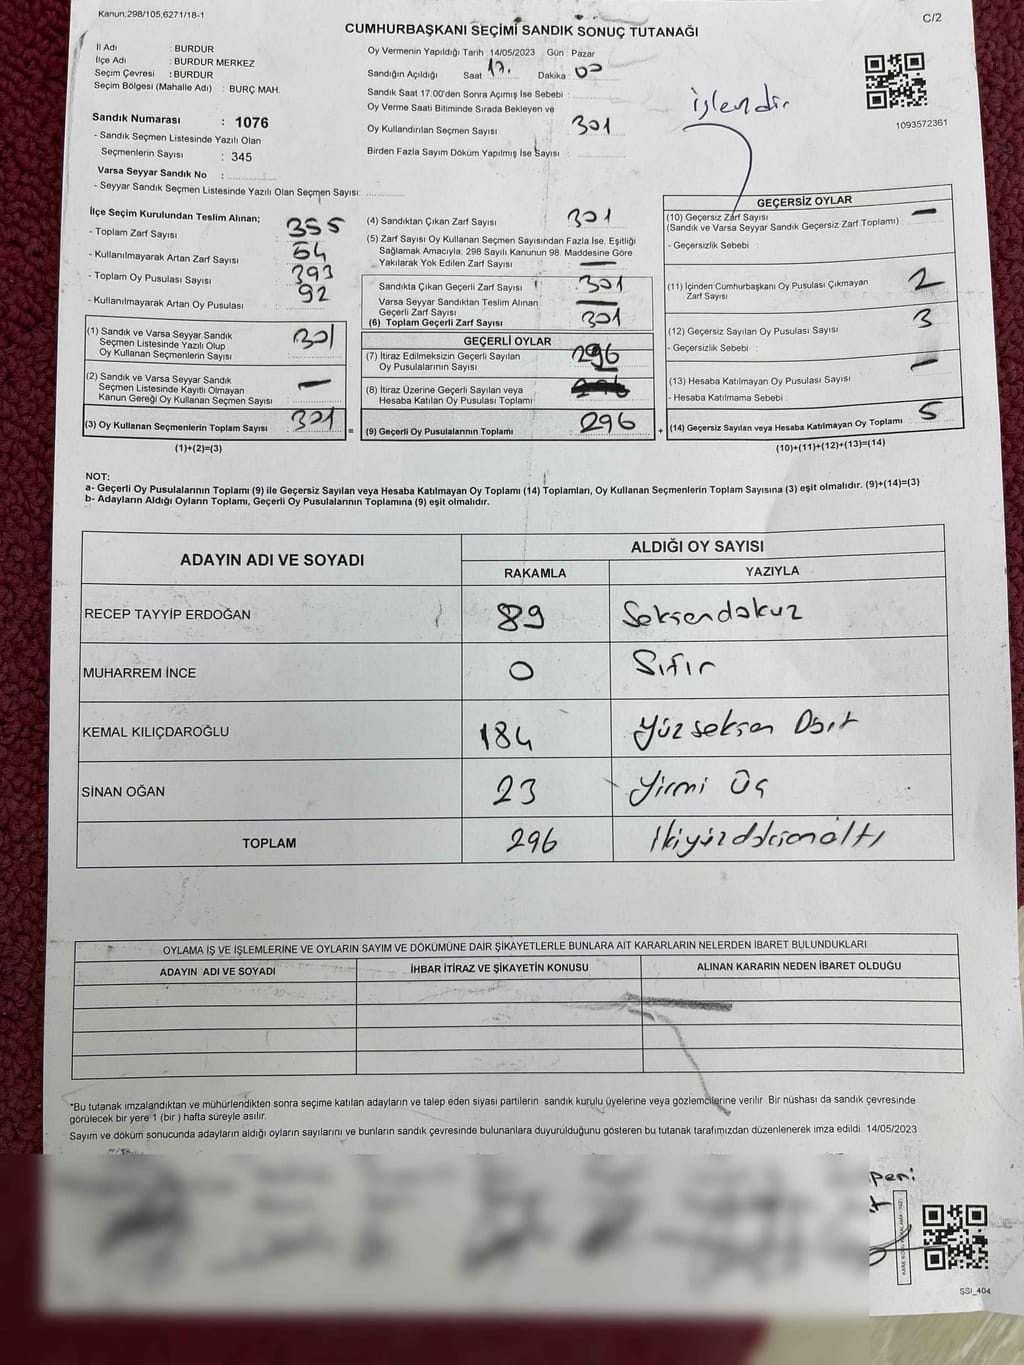 Kanun,298/105,6271/18-1
C/2
CUMHURBAŞKANI SEÇİMİ SANDIK SONUÇ TUTANAĞI
İl Adı : BURDUR
İlçe Adı : BURDUR MERKEZ
Seçim Çevresi : BURDUR
Seçim Bölgesi (Mahalle Adı) : BURÇ MAH.
Sandık Numarası : 1076
- Sandık Seçmen Listesinde Yazılı Olan
Seçmenlerin Sayısı : 345
Varsa Seyyar Sandık No :
- Seyyar Sandık Seçmen Listesinde Yazılı Olan Seçmen Sayısı:
Oy Vermenin Yapıldığı Tarih : 14/05/2023 Gün : Pazar
Sandığın Açıldığı Saat 17. Dakika : 00
Sandık Saat 17:00'den Sonra Açımış İse Sebebi :
Oy Verme Saati Bitiminde Sırada Bekleyen ve
Oy Kullandırılan Seçmen Sayısı : 301
Birden Fazla Sayım Döküm Yapılmış İse Sayısı :
işlendi
1093572361
İlçe Seçim Kurulundan Teslim Alınan;
- Toplam Zarf Sayısı : 355
- Kullanılmayarak Artan Zarf Sayısı : 54
- Toplam Oy Pusulası Sayısı : 393
- Kullanılmayarak Artan Oy Pusulası : 92
(1) Sandık ve Varsa Seyyar Sandık
Seçmen Listesinde Yazılı Olup
Oy Kullanan Seçmenlerin Sayısı : 301
(2) Sandık ve Varsa Seyyar Sandık
Seçmen Listesinde Kayıtlı Olmayan
Kanun Gereği Oy Kullanan Seçmen Sayısı : —
(3) Oy Kullanan Seçmenlerin Toplam Sayısı : 301 =
(1)+(2)=(3)
(4) Sandıktan Çıkan Zarf Sayısı : 301
(5) Zarf Sayısı Oy Kullanan Seçmen Sayısından Fazla İse, Eşitliği
Sağlamak Amacıyla, 298 Sayılı Kanunun 98. Maddesine Göre
Yakılarak Yok Edilen Zarf Sayısı : —
Sandıkta Çıkan Geçerli Zarf Sayısı : 301
Varsa Seyyar Sandıktan Teslim Alınan
Geçerli Zarf Sayısı : —
(6) Toplam Geçerli Zarf Sayısı : 301
GEÇERLİ OYLAR
(7) İtiraz Edilmeksizin Geçerli Sayılan
Oy Pusulalarının Sayısı : 296
(8) İtiraz Üzerine Geçerli Sayılan veya
Hesaba Katılan Oy Pusulası Toplamı : —
(9) Geçerli Oy Pusulalarının Toplamı : 296 +
GEÇERSİZ OYLAR
(10) Geçersiz Zarf Sayısı : —
(Sandık ve Varsa Seyyar Sandık Geçersiz Zarf Toplamı)
- Geçersizlik Sebebi :
(11) İçinden Cumhurbaşkanı Oy Pusulası Çıkmayan
Zarf Sayısı : 2
(12) Geçersiz Sayılan Oy Pusulası Sayısı : 3
- Geçersizlik Sebebi :
(13) Hesaba Katılmayan Oy Pusulası Sayısı : —
- Hesaba Katılmama Sebebi :
(14) Geçersiz Sayılan veya Hesaba Katılmayan Oy Toplamı : 5
(10)+(11)+(12)+(13)=(14)
NOT:
a- Geçerli Oy Pusulalarının Toplamı (9) ile Geçersiz Sayılan veya Hesaba Katılmayan Oy Toplamı (14) Toplamları, Oy Kullanan Seçmenlerin Toplam Sayısına (3) eşit olmalıdır. (9)+(14)=(3)
b- Adayların Aldığı Oyların Toplamı, Geçerli Oy Pusulalarının Toplamına (9) eşit olmalıdır.
ADAYIN ADI VE SOYADI ALDIĞI OY SAYISI
RAKAMLA YAZIYLA
RECEP TAYYİP ERDOĞAN 89 Seksendokuz
MUHARREM İNCE 0 Sıfır
KEMAL KILIÇDAROĞLU 184 Yüzseksen Dört
SİNAN OĞAN 23 Yirmi Üç
TOPLAM 296 İkiyüzdoksanaltı
OYLAMA İŞ VE İŞLEMLERİNE VE OYLARIN SAYIM VE DÖKÜMÜNE DAİR ŞİKAYETLERLE BUNLARA AİT KARARLARIN NELERDEN İBARET BULUNDUKLARI
ADAYIN ADI VE SOYADI İHBAR İTİRAZ VE ŞİKAYETİN KONUSU ALINAN KARARIN NEDEN İBARET OLDUĞU
*Bu tutanak imzalandıktan ve mühürlendikten sonra seçime katılan adayların ve talep eden siyasi partilerin sandık kurulu üyelerine veya gözlemcilerine verilir. Bir nüshası da sandık çevresinde
görülecek bir yere 1 (bir ) hafta süreyle asılır.
Sayım ve döküm sonucunda adayların aldığı oyların sayılarını ve bunların sandık çevresinde bulunanlara duyurulduğunu gösteren bu tutanak tarafımızdan düzenlenerek imza edildi. 14/05/2023
SSI_404